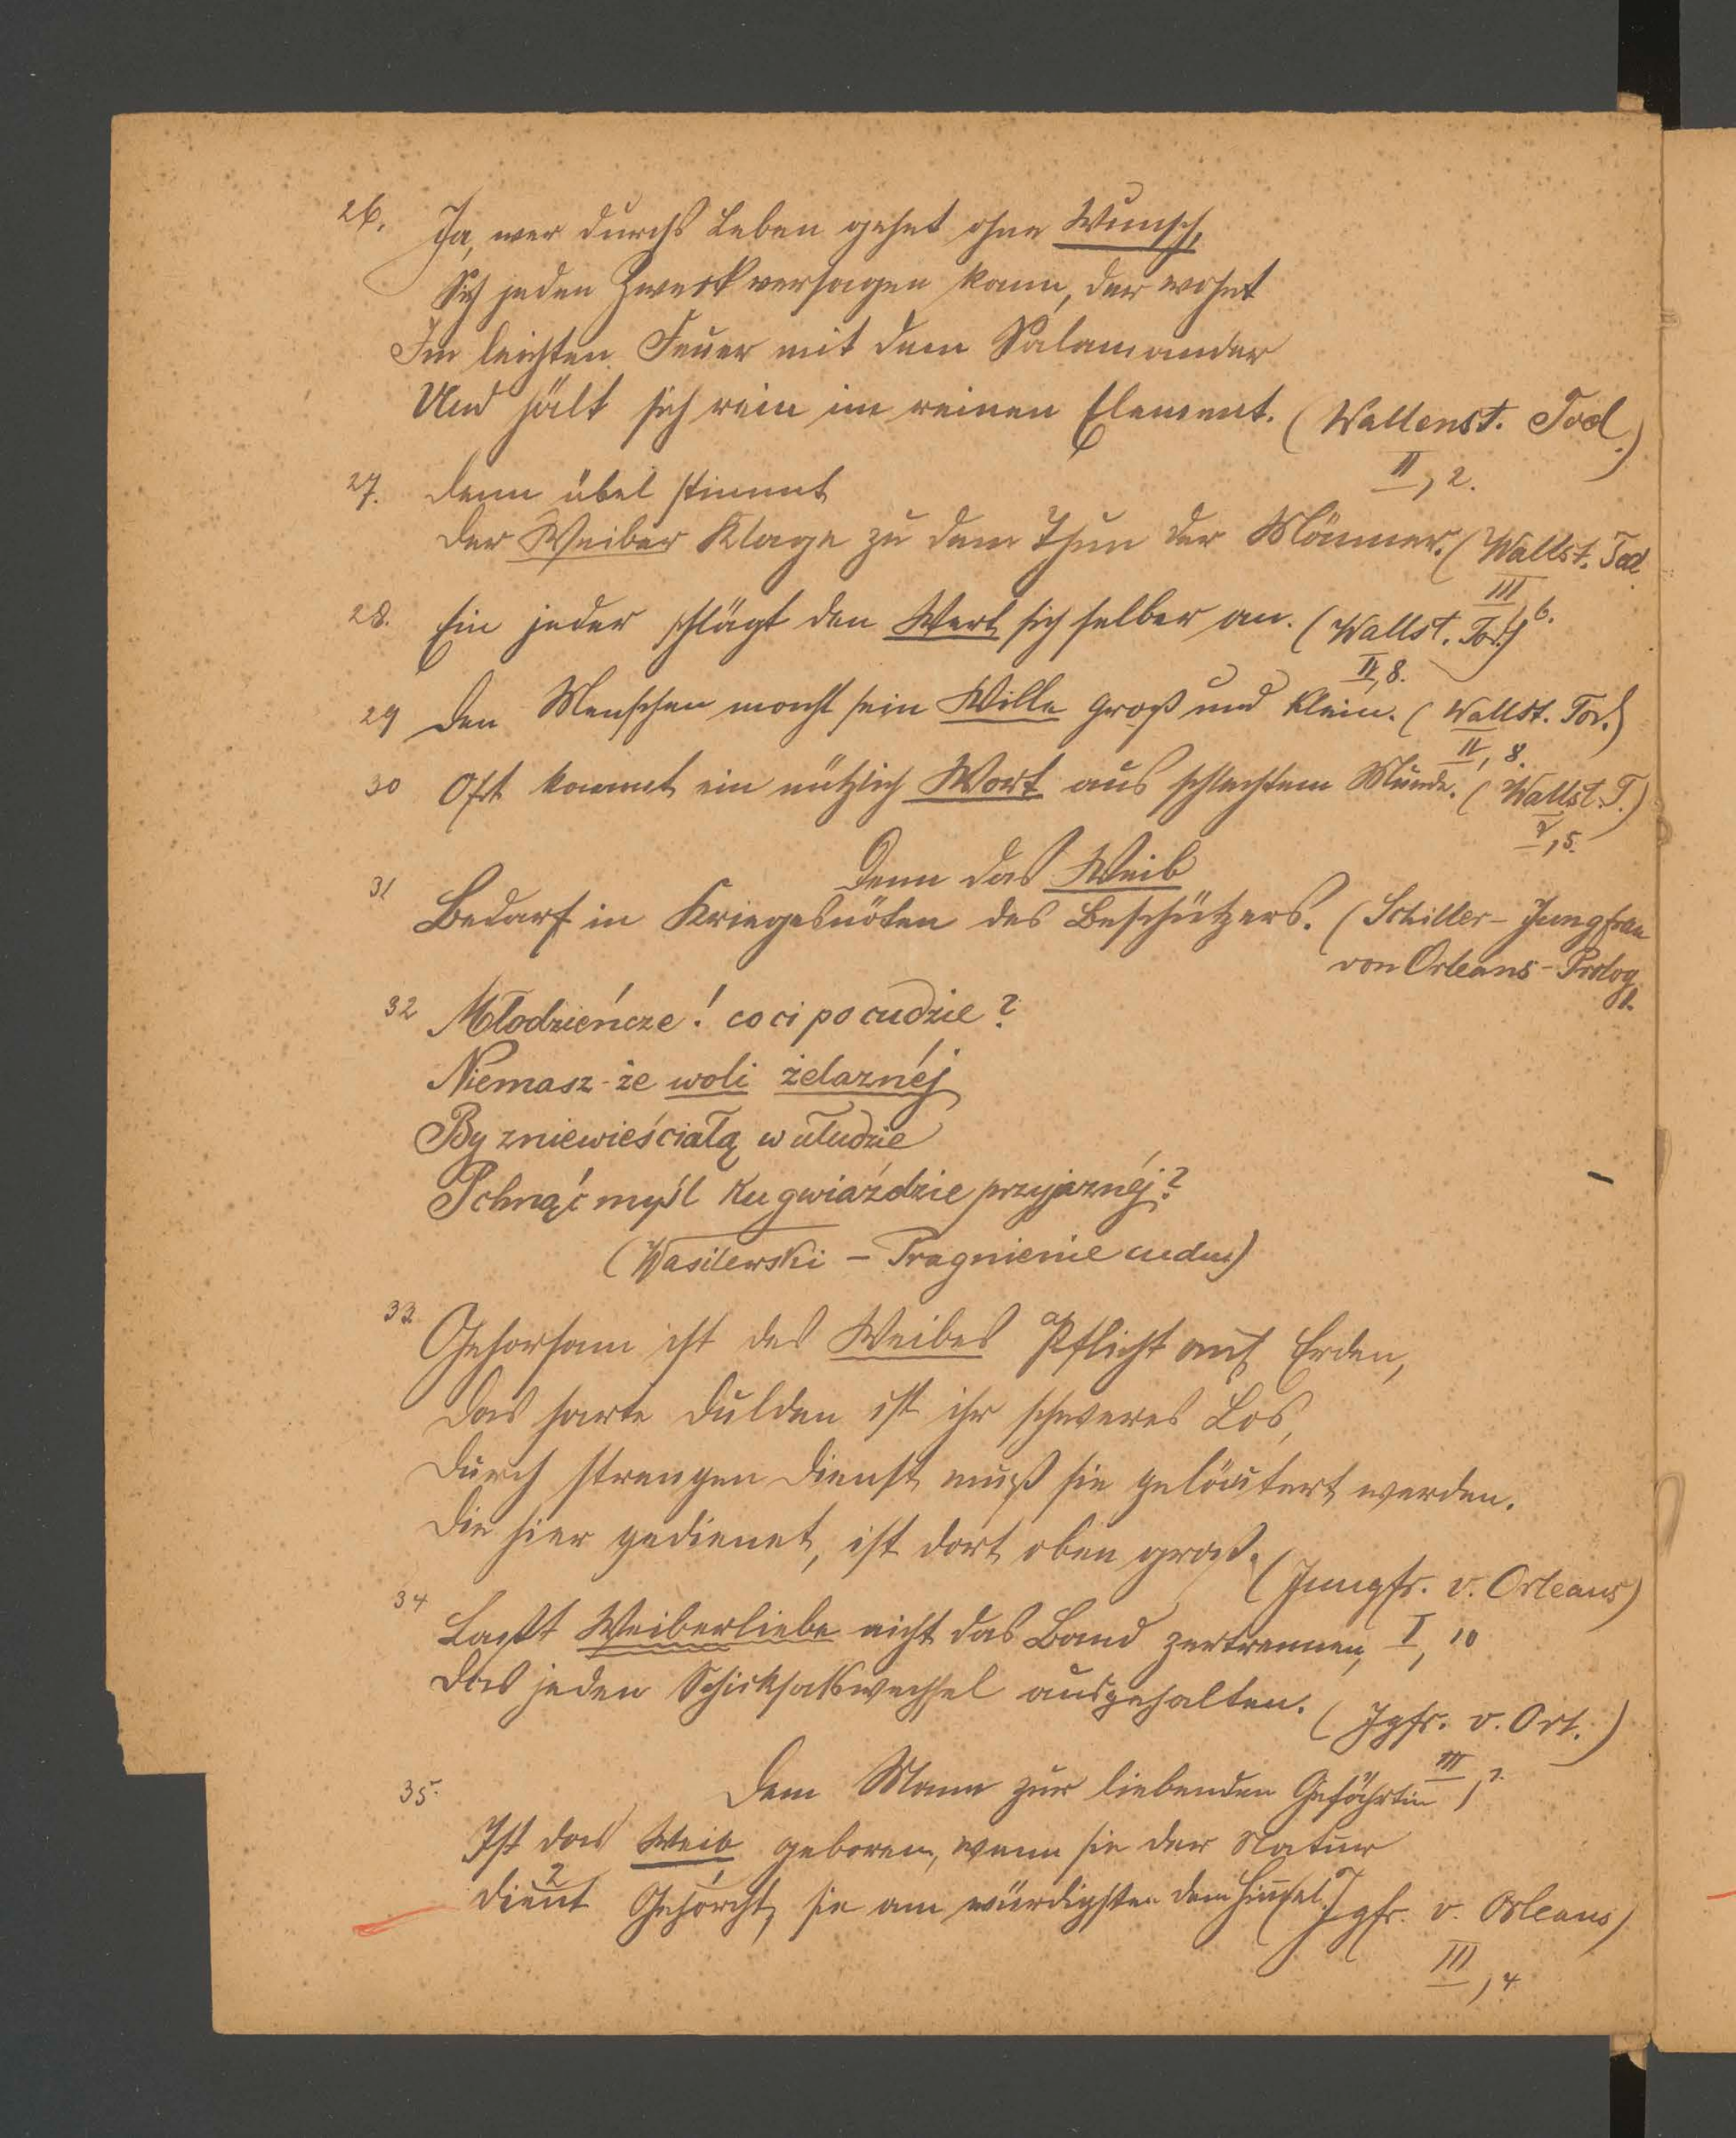 26. Ja, wer durchs Leben gehet ohne Wunsch,
Sich jeden Zweck versagen kann, der wohnt
Im leichten Feuer mit dem Salamander
Und hält sich rein im reinen Element. (Wallenst. Tod.)
II, 2.
27. Denn übel stimmt
Der Weiber Klage zu dem Thun der Männer. (Wallst. Tod
III, 6.
28. Ein jeder schlägt den Wert sich selber an. (Wallst. Tod.)
II, 8.
29 Den Menschen macht sein Wille groß und klein. (Wallst. Tod.)
II, 8.
30 Oft kommt ein nützlich Wort aus schlechtem Munde. (Wallst. T.)
V, 5.
31 Denn das Weib
Bedarf in Kriegesnöten des Beschützers. (Schiller - Jungfrau
von Orleans - Prolog
1.
32 Młodzieńcze! co ci po cudzie?
Niemasz-że woli żelaznéj
By zniewieściałą w ułudzie
Pchnąć myśl ku gwiaździe przyjaznéj?
(Wasilewski - Pragnienie cudu)
33. Gehorsam ist des Weibes Pflicht auf Erden,
Das harte Dulden ist ihr schweres Los,
Durch strengen Dienst muß sie geläutert werden.
Die hier gedienet, ist dort oben groß. (Jungfr. v. Orleans)
I, 10
34 Laßt Weiberliebe nicht das Band zertrennen,
Das jeden Schicksalswechsel ausgehalten. (Jgfr. v. Orl.)
III, 2.
35. Dem Mann zur liebenden Gefährtin
Ist das Weib geboren, wenn sie der Natur
Gehorcht, dient sie am würdigsten dem Himmel. (Jgfr. v. Orleans)
III, 4